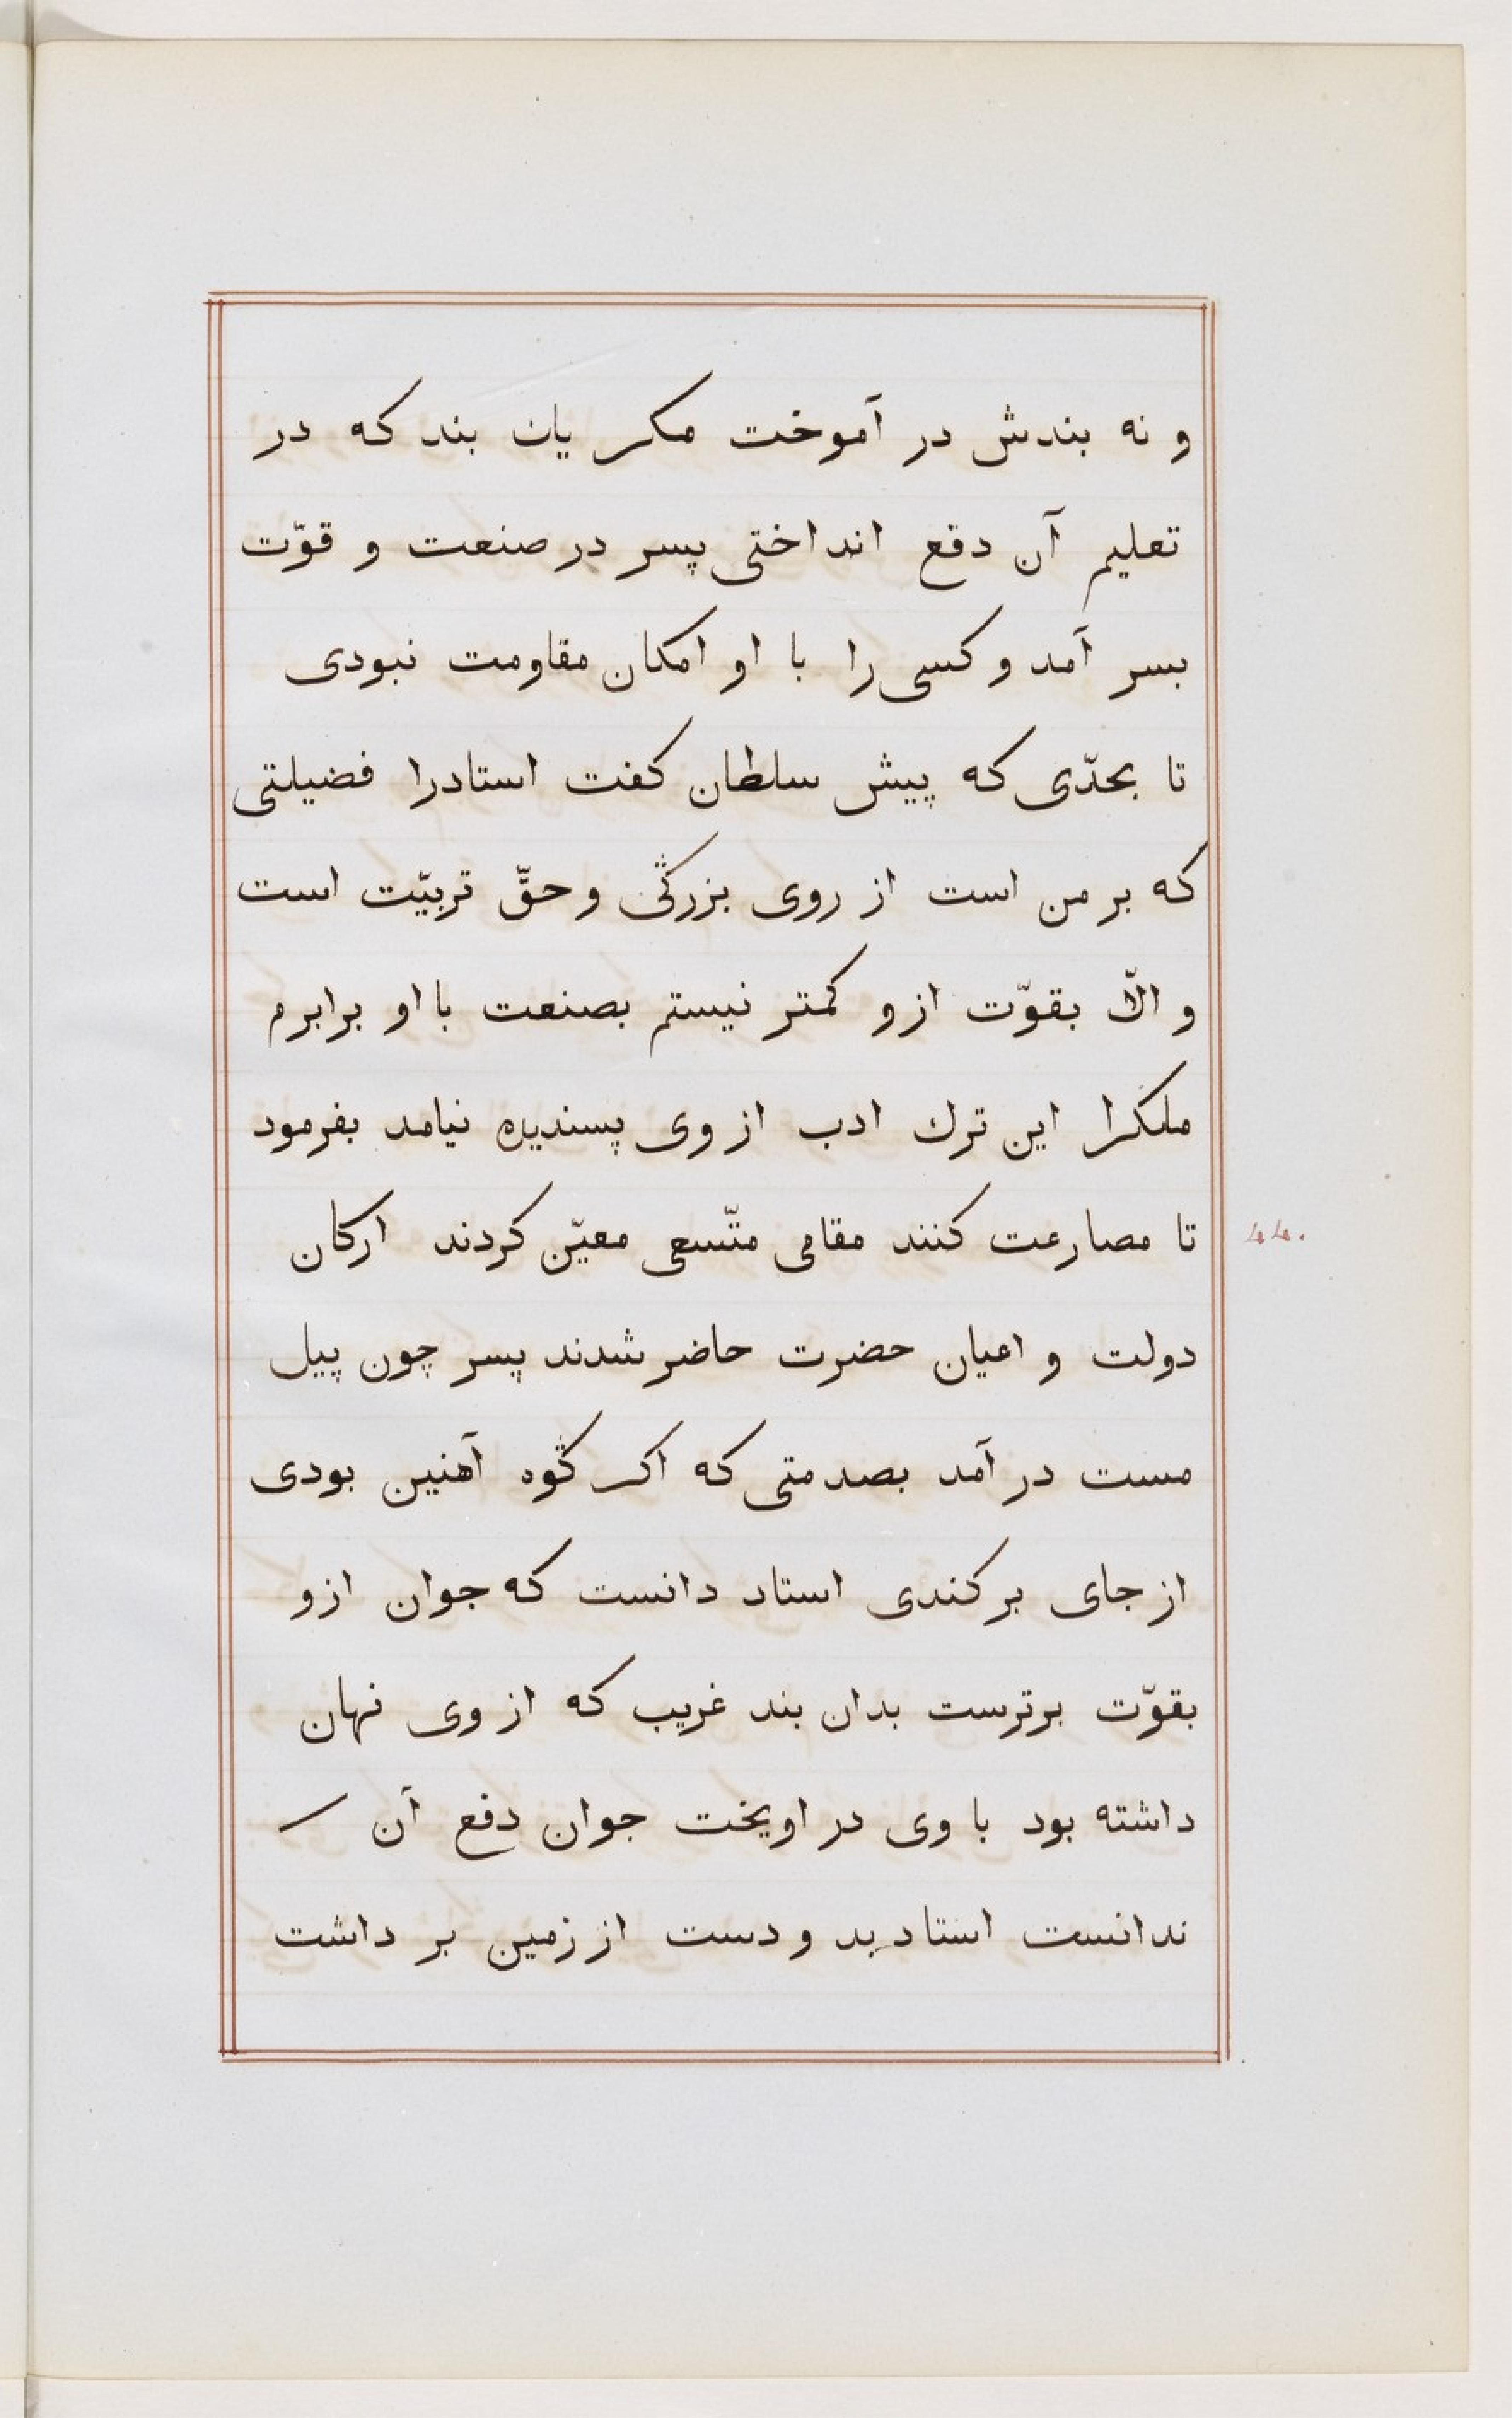 و نه بندش در آموخت مکر یك بند که در
تعلیم آن دفع انداختی پسر در صنعت و قوّت
بسر آمد و کسی را با او امکان مقاومت نبودی
تا بحدّی که پیش سلطان کفت استادرا فضیلتی
که بر من است از روی بزرڭی و حقّ تربیّت است
و الّا بقوّت ازو کمتر نیستم بصنعت با او برابرم
ملکرا این ترك ادب از وی پسندیده نیامد بفرمود
تا مصارعت کنند مقامی متّسعی معیّن کردند ارکان
دولت و اعیان حضرت حاضر شدند پسر چون پیل
مست در آمد بصدمتی که اکر ڭوه آهنین بودی
از جای بر کندی استاد دانست که جوان ازو
بقوّت برترست بدان بند غریب که از وی نهان
داشته بود با وی در اویخت جوان دفع آن
ندانست استاد بد و دست از زمین بر داشت